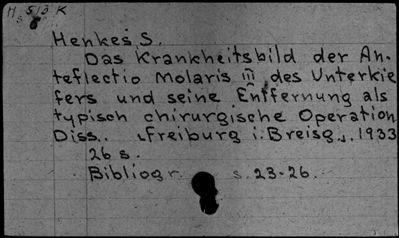 H 513 K
Henkes S.
Das Krankheitsbild der An-
teflectio Molaris III des Unterkie
fers und seine Entfernung als
typisch chirurgische Operation
Diss.. Freiburg i. Breisg., 1933
26 s.
Bibliogr. s. 23-26.